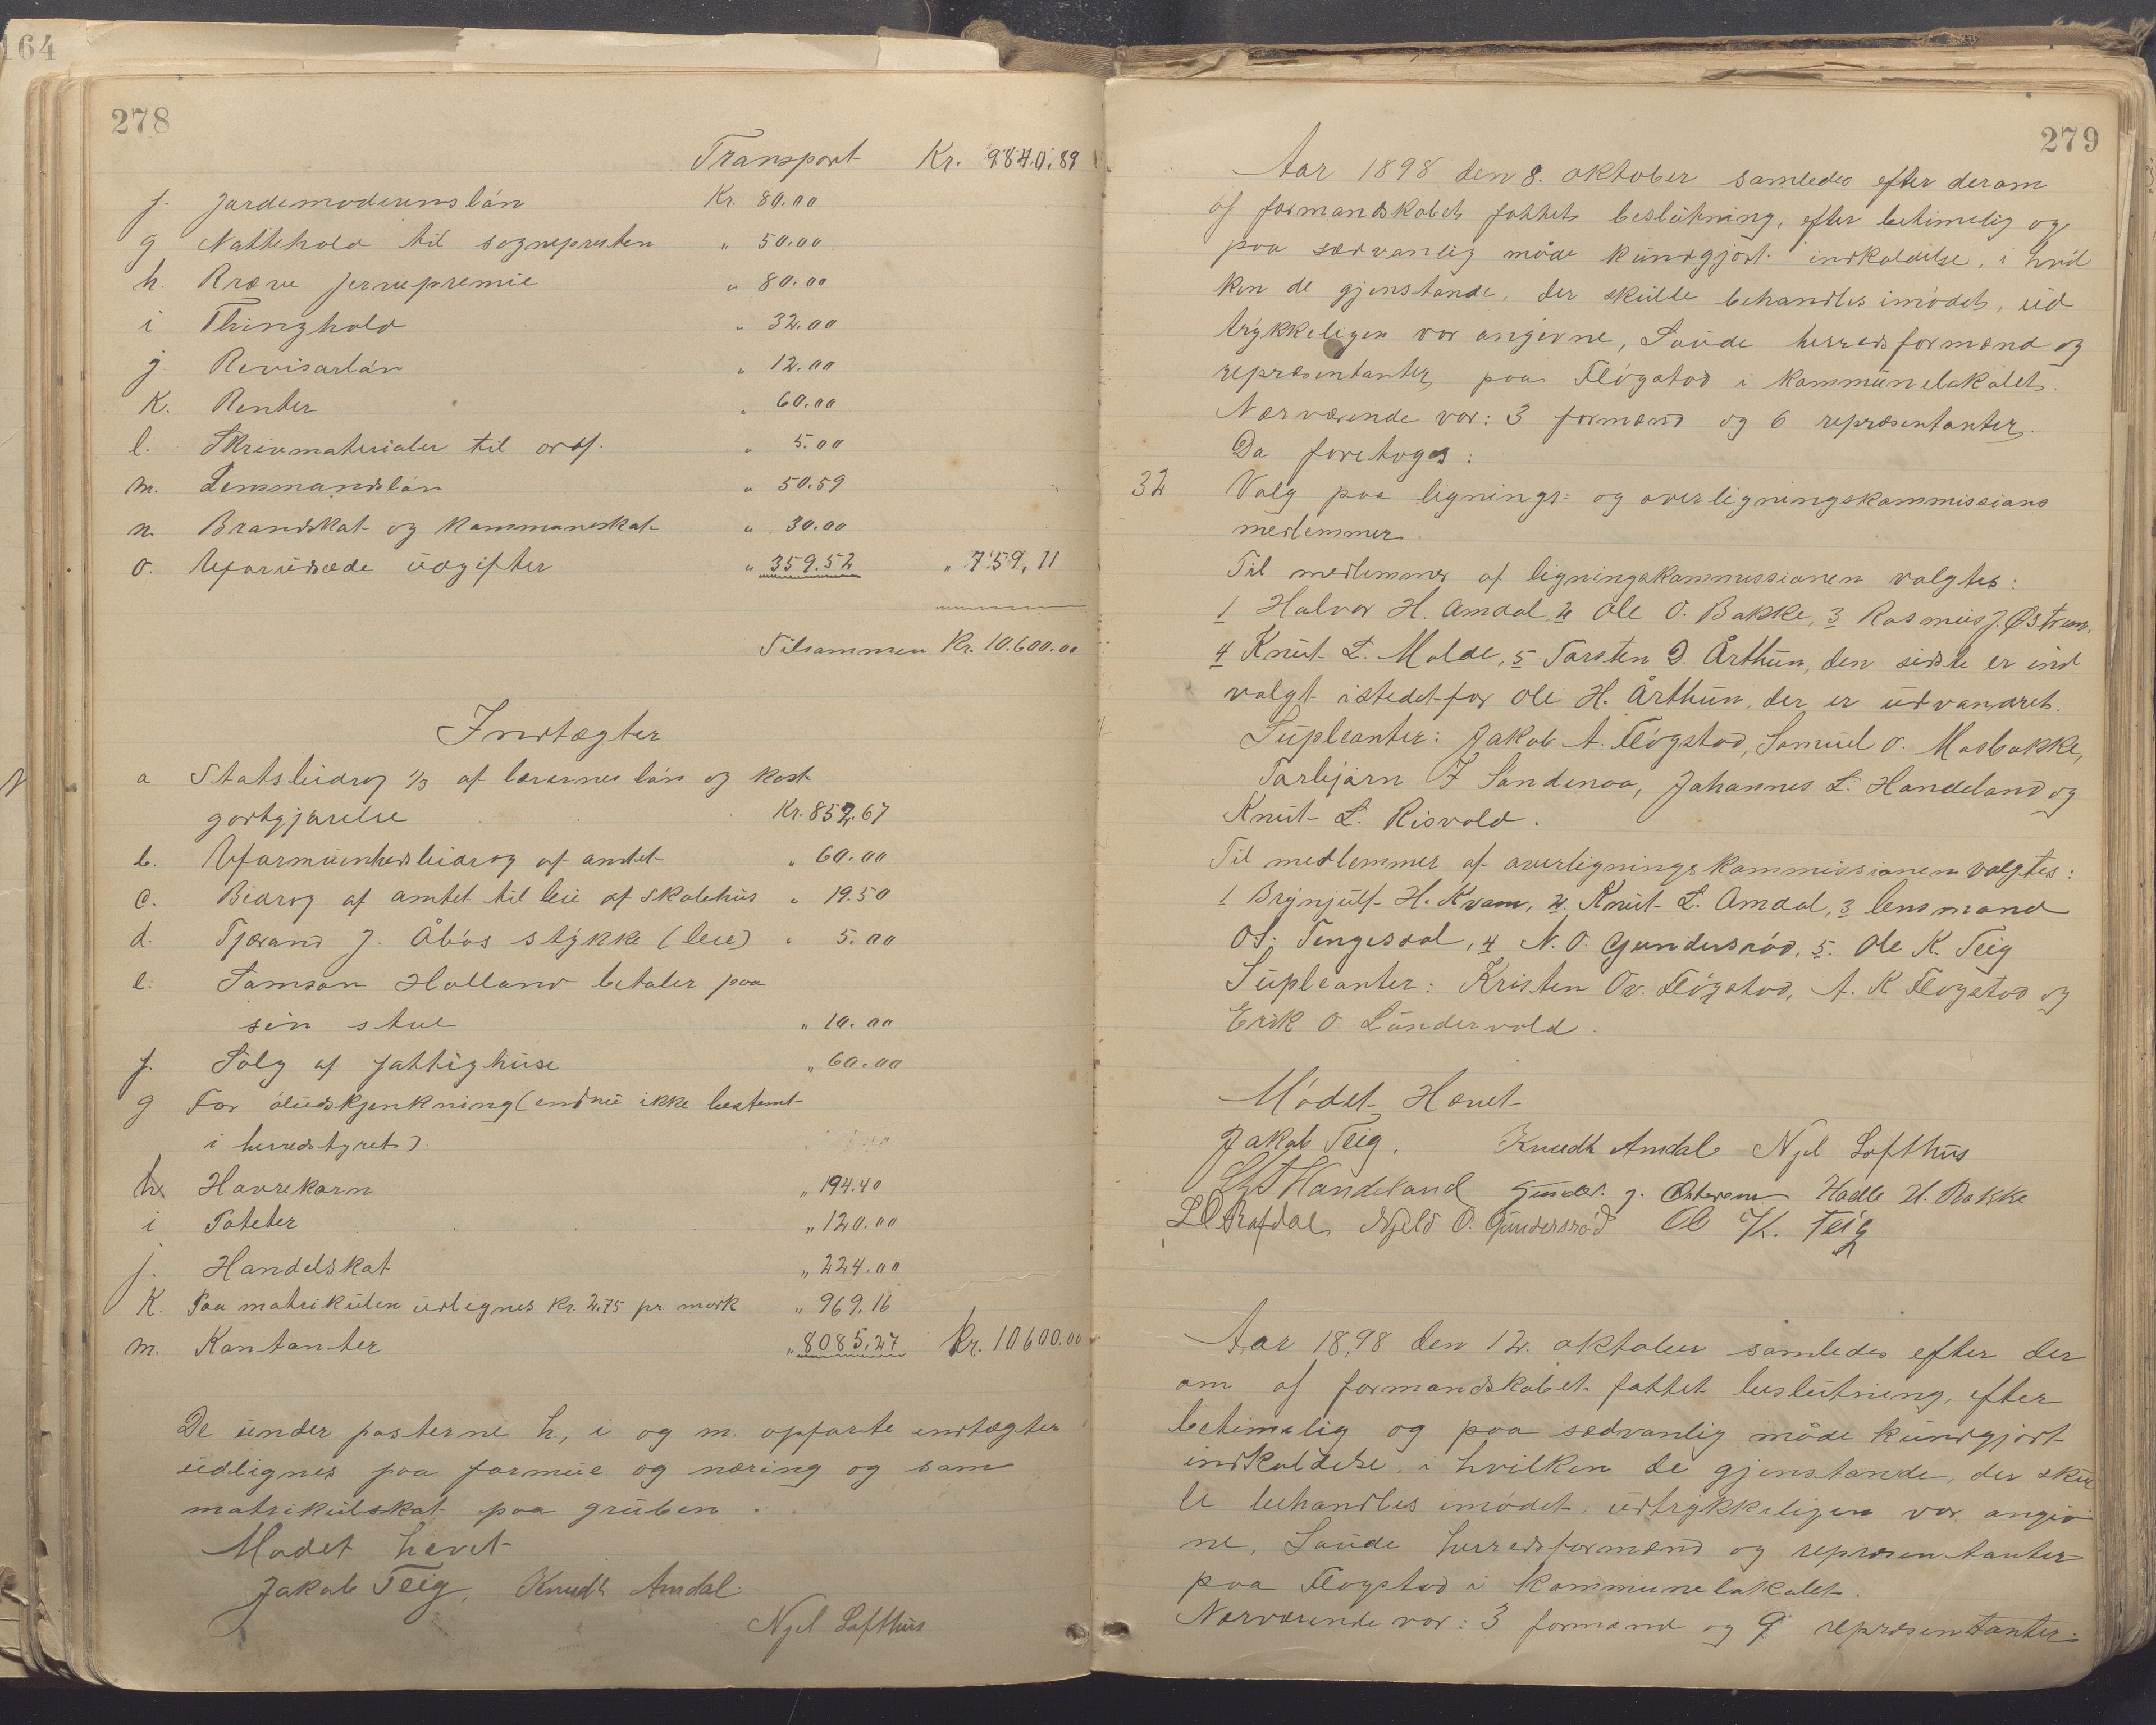 164
278
Transport Kr. 9840,89
f. Jordemoderens lön Kr. 80.00
g Nattehold til sognepresten " 50.00
h. Ræve jervepremie " 80.00
i Thinghold " 32.00
j. Revisorlön " 12.00
K. Renter " 60.00
l. Skrivmaterialer til ordf. " 5.00
m. Lensmandslön " 50.59
n. Brandskat og kommuneskat " 30.00
o. Uforudsede udgifter " 359.52 " 759,11
Tilsammen Kr. 10.600.00
Indtægter
a Statsbidrag 1/3 af lærernes lön og kost
godtgjørelse Kr. 852.67
b. Uformuenhedsbidrag af amtet " 60.00
c. Bidrag af amtet til leie af skolehus " 19.50
d. Tjerand J. Åbös stykke (leie) " 5.00
e. Samson Holland betaler paa
sin stue " 10.00
f. Salg af fattighuse " 60.00
g For øludskjenkning (endnu ikke bestemt
i herredstyret).
h Havrekorn " 194.40
i Poteter " 120.00
j. Handelskat " 224.00
K. Paa matrikulen udlignes Kr. 2.75 pr. mark " 969.16
m. Kontanter " 8085.27 Kr. 10600.00
De under posterne h., i og m. opførte indtægter
udlignes paa formue og næring og som
matrikulskat paa gruben.
Mödet hævet
Jakob Teig, Knudt Amdal
Njel Lofthus
279
Aar 1898 den 8. oktober samledes efter derom
af formandskabet fattet beslutning, efter betimelig og
paa sædvanlig måde kundgjort indkaldelse, i hvil
ken de gjenstande, der skulle behandles i mödet, ud
trykkeligen var angivne, Saude herredsformænd og
repræsentanter paa Flögstad i kommunelokalet.
Nærværende var: 3 formænd og 6 repræsentanter.
Da foretoges:
32 Valg paa lignings= og overligningskommissions
medlemmer.
Til medlemmer af ligningskommissionen valgtes:
1 Halvor H. Amdal 2 Ole O. Bakke, 3 Rasmus J. Østrem,
4 Knut L. Molde, 5 Torsten D. Årthun, den sidste er ind
valgt istedetfor Ole H. Årthun, der er udvandret.
Supleanter: Jakob A. Flögstad, Samuel O. Mosbakke,
Torbjørn I Sandenoa, Johannes L. Handeland og
Knut L. Risvold.
Til medlemmer af overligningskommissionen valgtes:
1 Brynjulf H. Kvam, 2. Knut L. Amdal, 3 lensmand
O. J. Tengesdal, 4 N. O. Gundersröd, 5. Ole K. Teig
Supleanter: Kristen Ov. Flögstad, A. K Flögstad og
Erik O. Lundervold.
Mödet Hævet
Jakob Teig. Knudt Amdal Njel Lofthus
Handeland Gunder. J. Østerem Hadle H. Bakke
L O Rafdal, Njeld O. Gundersröd Ole K. Teig
Aar 1898 den 12. oktober samledes efter der
om af formandskabet fattet beslutning, efter
betimelig og paa sædvanlig måde kundgjort
indkaldelse, i hvilken de gjenstande, der skul
le behandles i mödet udtrykkeligen var angiv
ne, Saude herredsformænd og repræsentanter
paa Flögstad i kommunelokalet.
Nærværende var: 3 formænd og 9 repræsentanter.